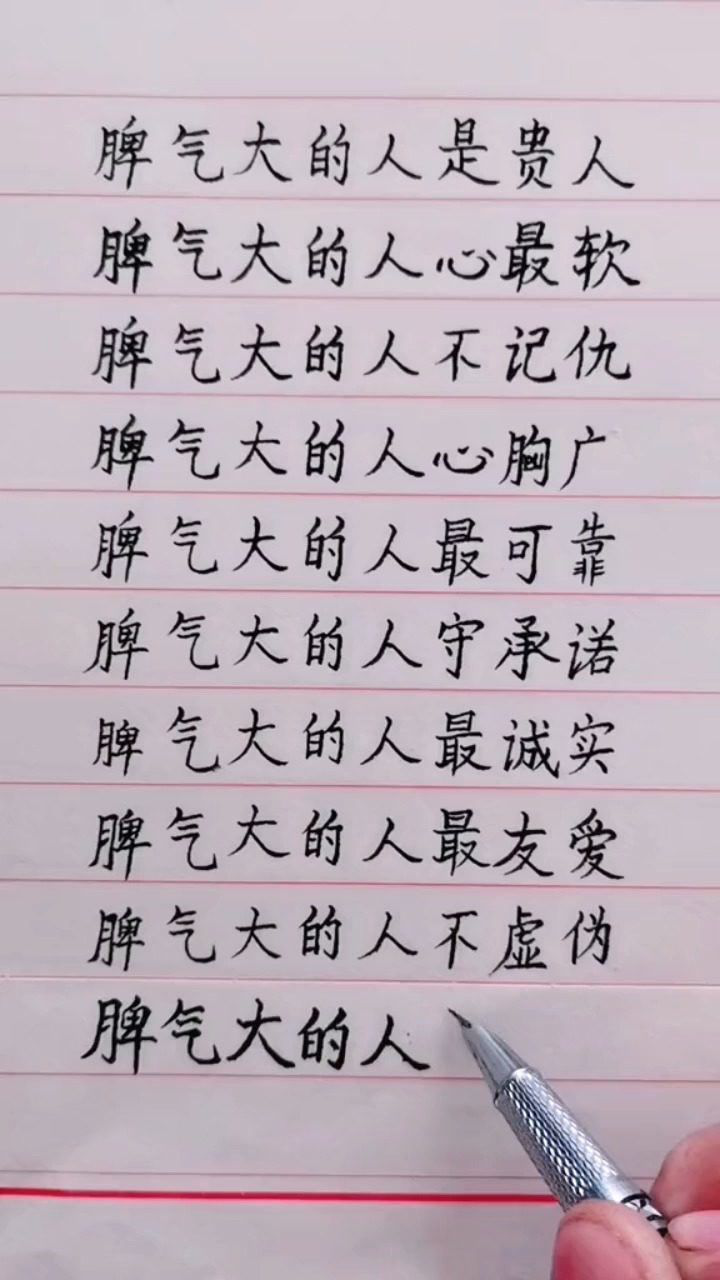 脾气大的人是贵人
脾气大的人心最软
脾气大的人不记仇
脾气大的人心胸广
脾气大的人最可靠
脾气大的人守承诺
脾气大的人最诚实
脾气大的人最友爱
脾气大的人不虚伪
脾气大的人